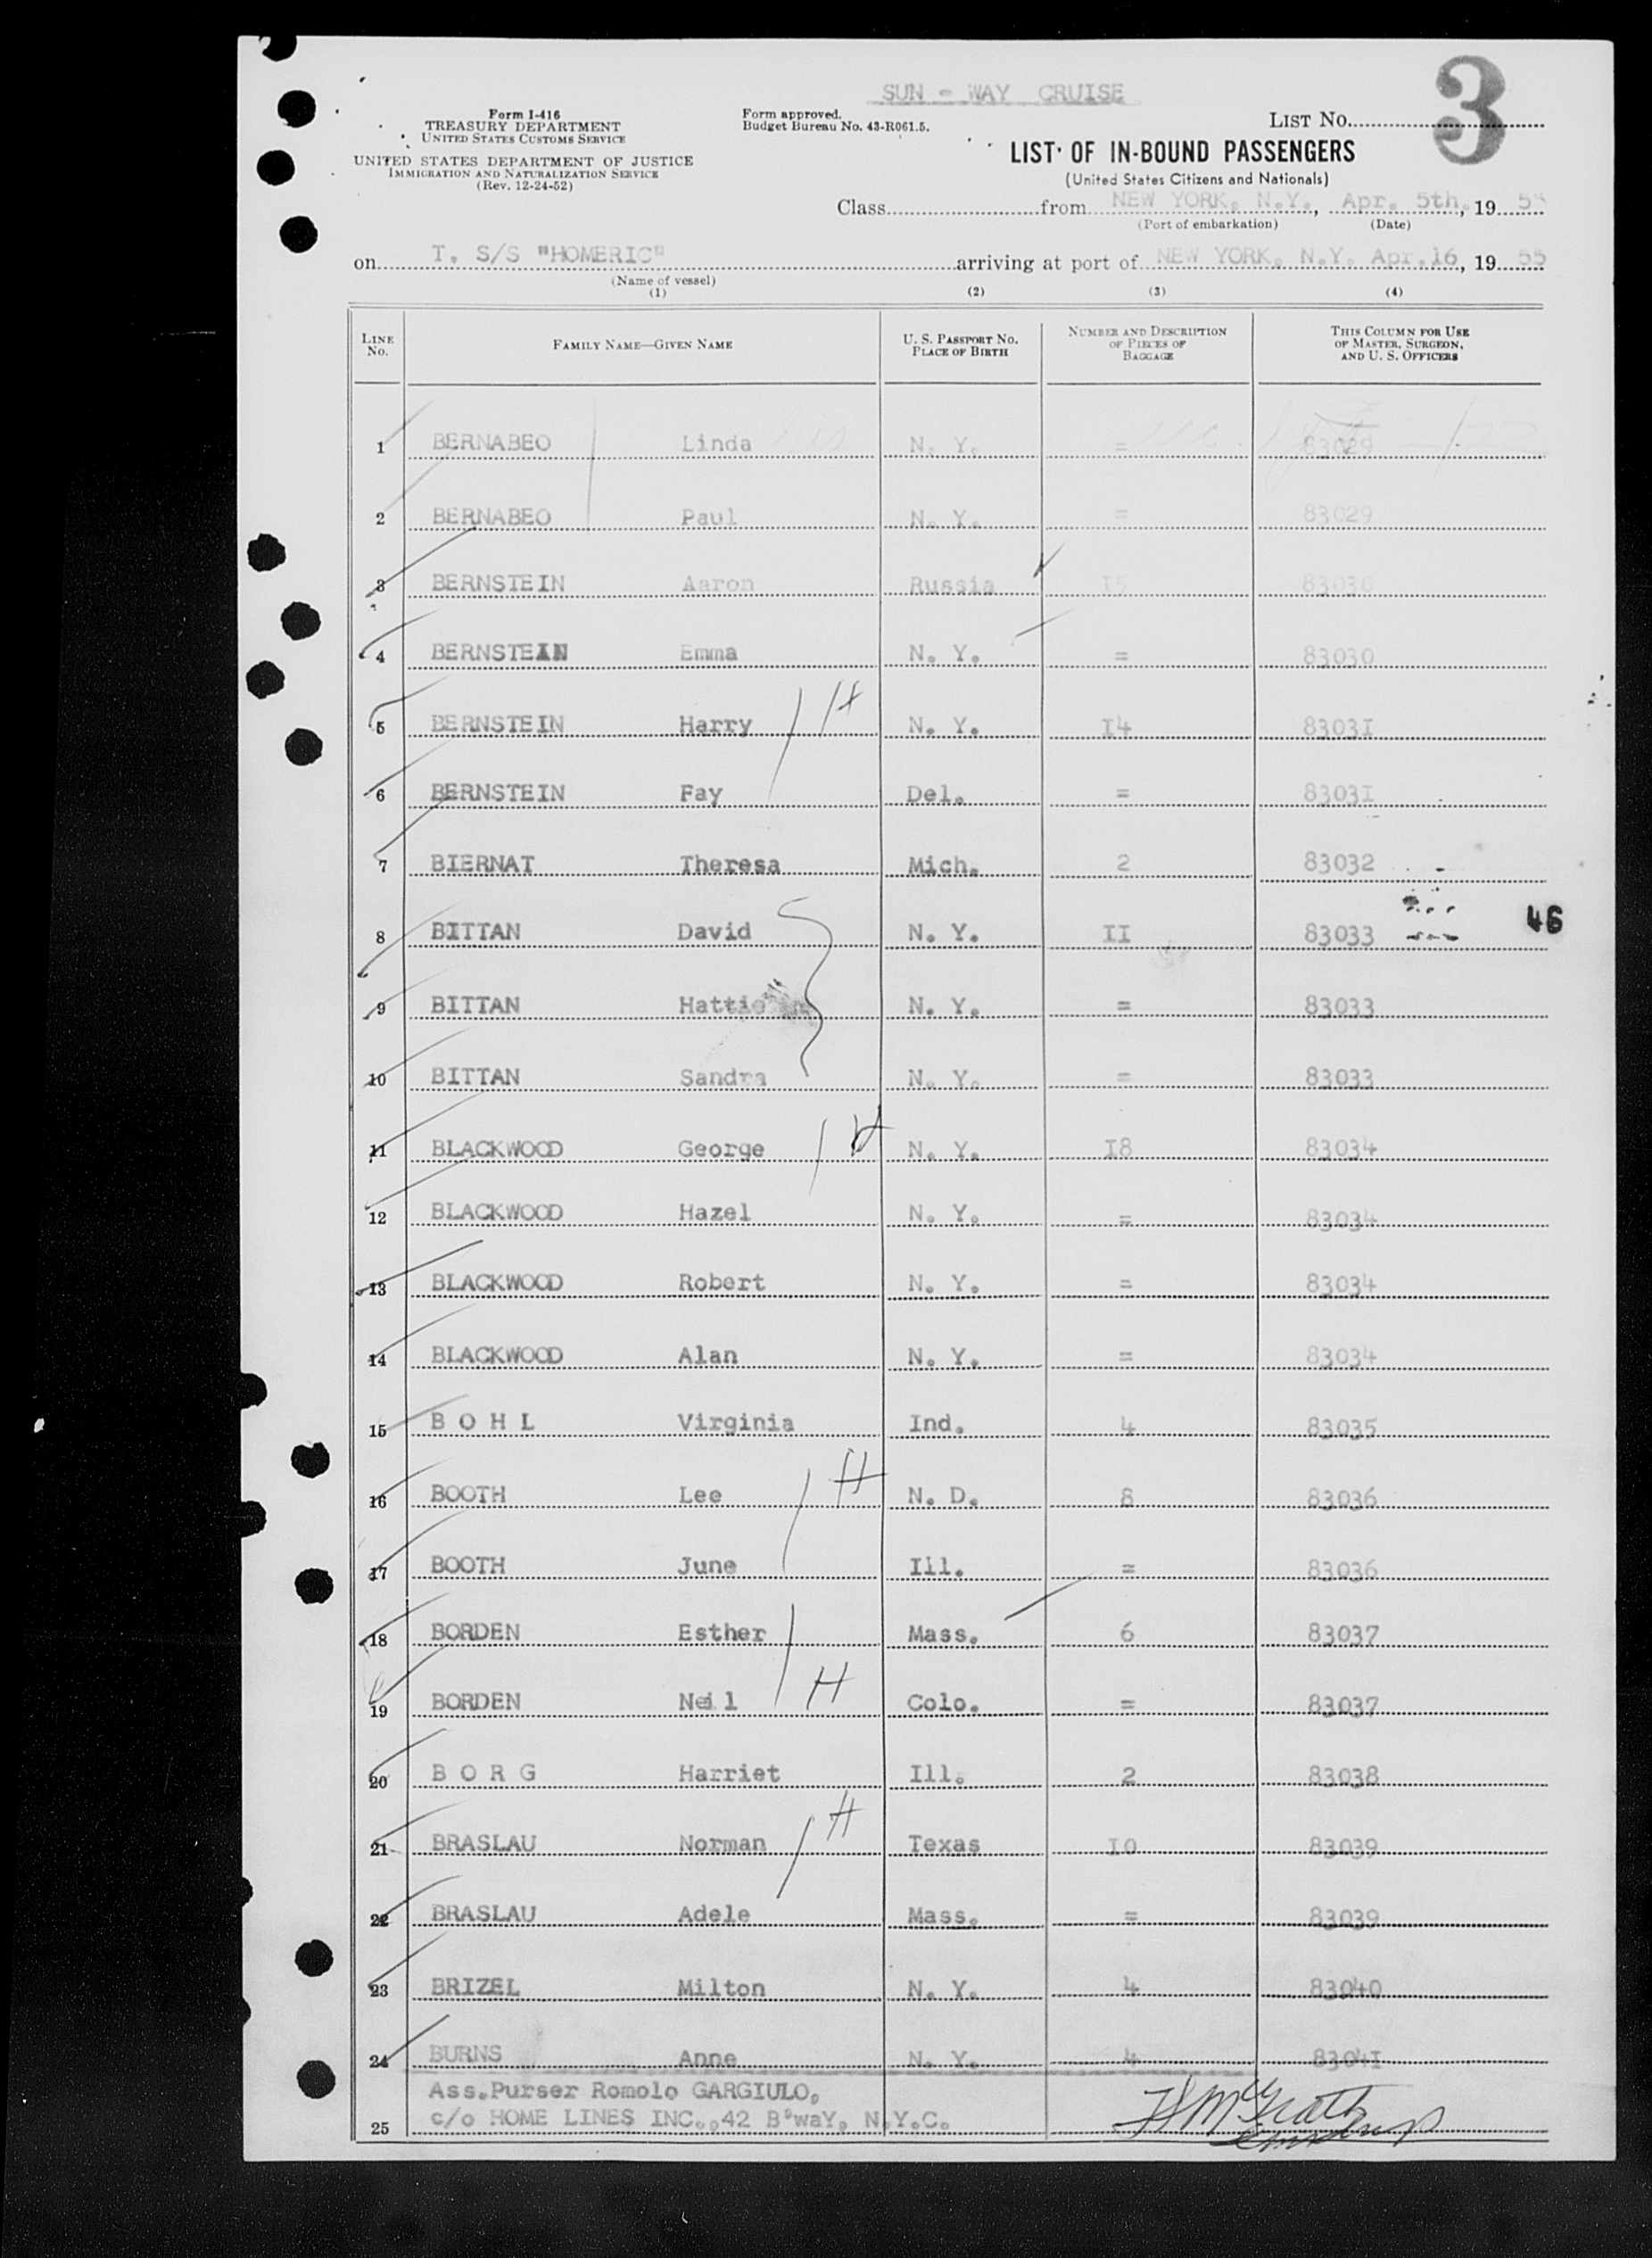 SUN - WAY CRUISE
3
Form I-416
TREASURY DEPARTMENT
UNITED STATES CUSTOMS SERVICE
UNITED STATES DEPARTMENT OF JUSTICE
IMMIGRATION AND NATURALIZATION SERVICE
(Rev. 12-24-52)
Form approved.
Budget Bureau No. 43-R061.5.
LIST NO.
LIST OF IN-BOUND PASSENGERS
(United States Citizens and Nationals)
Class from NEW YORK, N.Y., Apr. 5th, 19 55
(Port of embarkation) (Date)
on T. S/S "HOMERIC" arriving at port of NEW YORK, N.Y. Apr.16, 19 55
(Name of vessel)
(1) (2) (3) (4)
LINE NO. FAMILY NAME—GIVEN NAME U. S. PASSPORT NO. PLACE OF BIRTH NUMBER AND DESCRIPTION OF PIECES OF BAGGAGE THIS COLUMN FOR USE OF MASTER, SURGEON, AND U. S. OFFICERS
1 BERNABEO Linda N. Y. = 83029
2 BERNABEO Paul N. Y. = 83029
3 BERNSTEIN Aaron Russia I5 83030
4 BERNSTEIN Emma N. Y. = 83030
5 BERNSTEIN Harry H N. Y. I4 8303I
6 BERNSTEIN Fay Del. = 8303I
7 BIERNAT Theresa Mich. 2 83032
8 BITTAN David N. Y. II 83033 46
9 BITTAN Hattie N. Y. = 83033
10 BITTAN Sandra N. Y. = 83033
11 BLACKWOOD George H N. Y. I8 83034
12 BLACKWOOD Hazel N. Y. = 83034
13 BLACKWOOD Robert N. Y. = 83034
14 BLACKWOOD Alan N. Y. = 83034
15 B O H L Virginia Ind. 4 83035
16 BOOTH Lee H N. D. 8 83036
17 BOOTH June Ill. = 83036
18 BORDEN Esther Mass. 6 83037
19 BORDEN Neil H Colo. = 83037
20 B O R G Harriet Ill. 2 83038
21 BRASLAU Norman H Texas I0 83039
22 BRASLAU Adele Mass. = 83039
23 BRIZEL Milton N. Y. 4 83040
24 BURNS Anne N. Y. 4 8304I
Ass.Purser Romolo GARGIULO,
25 c/o HOME LINES INC.,42 B'waY, N.Y.C.
McGrath